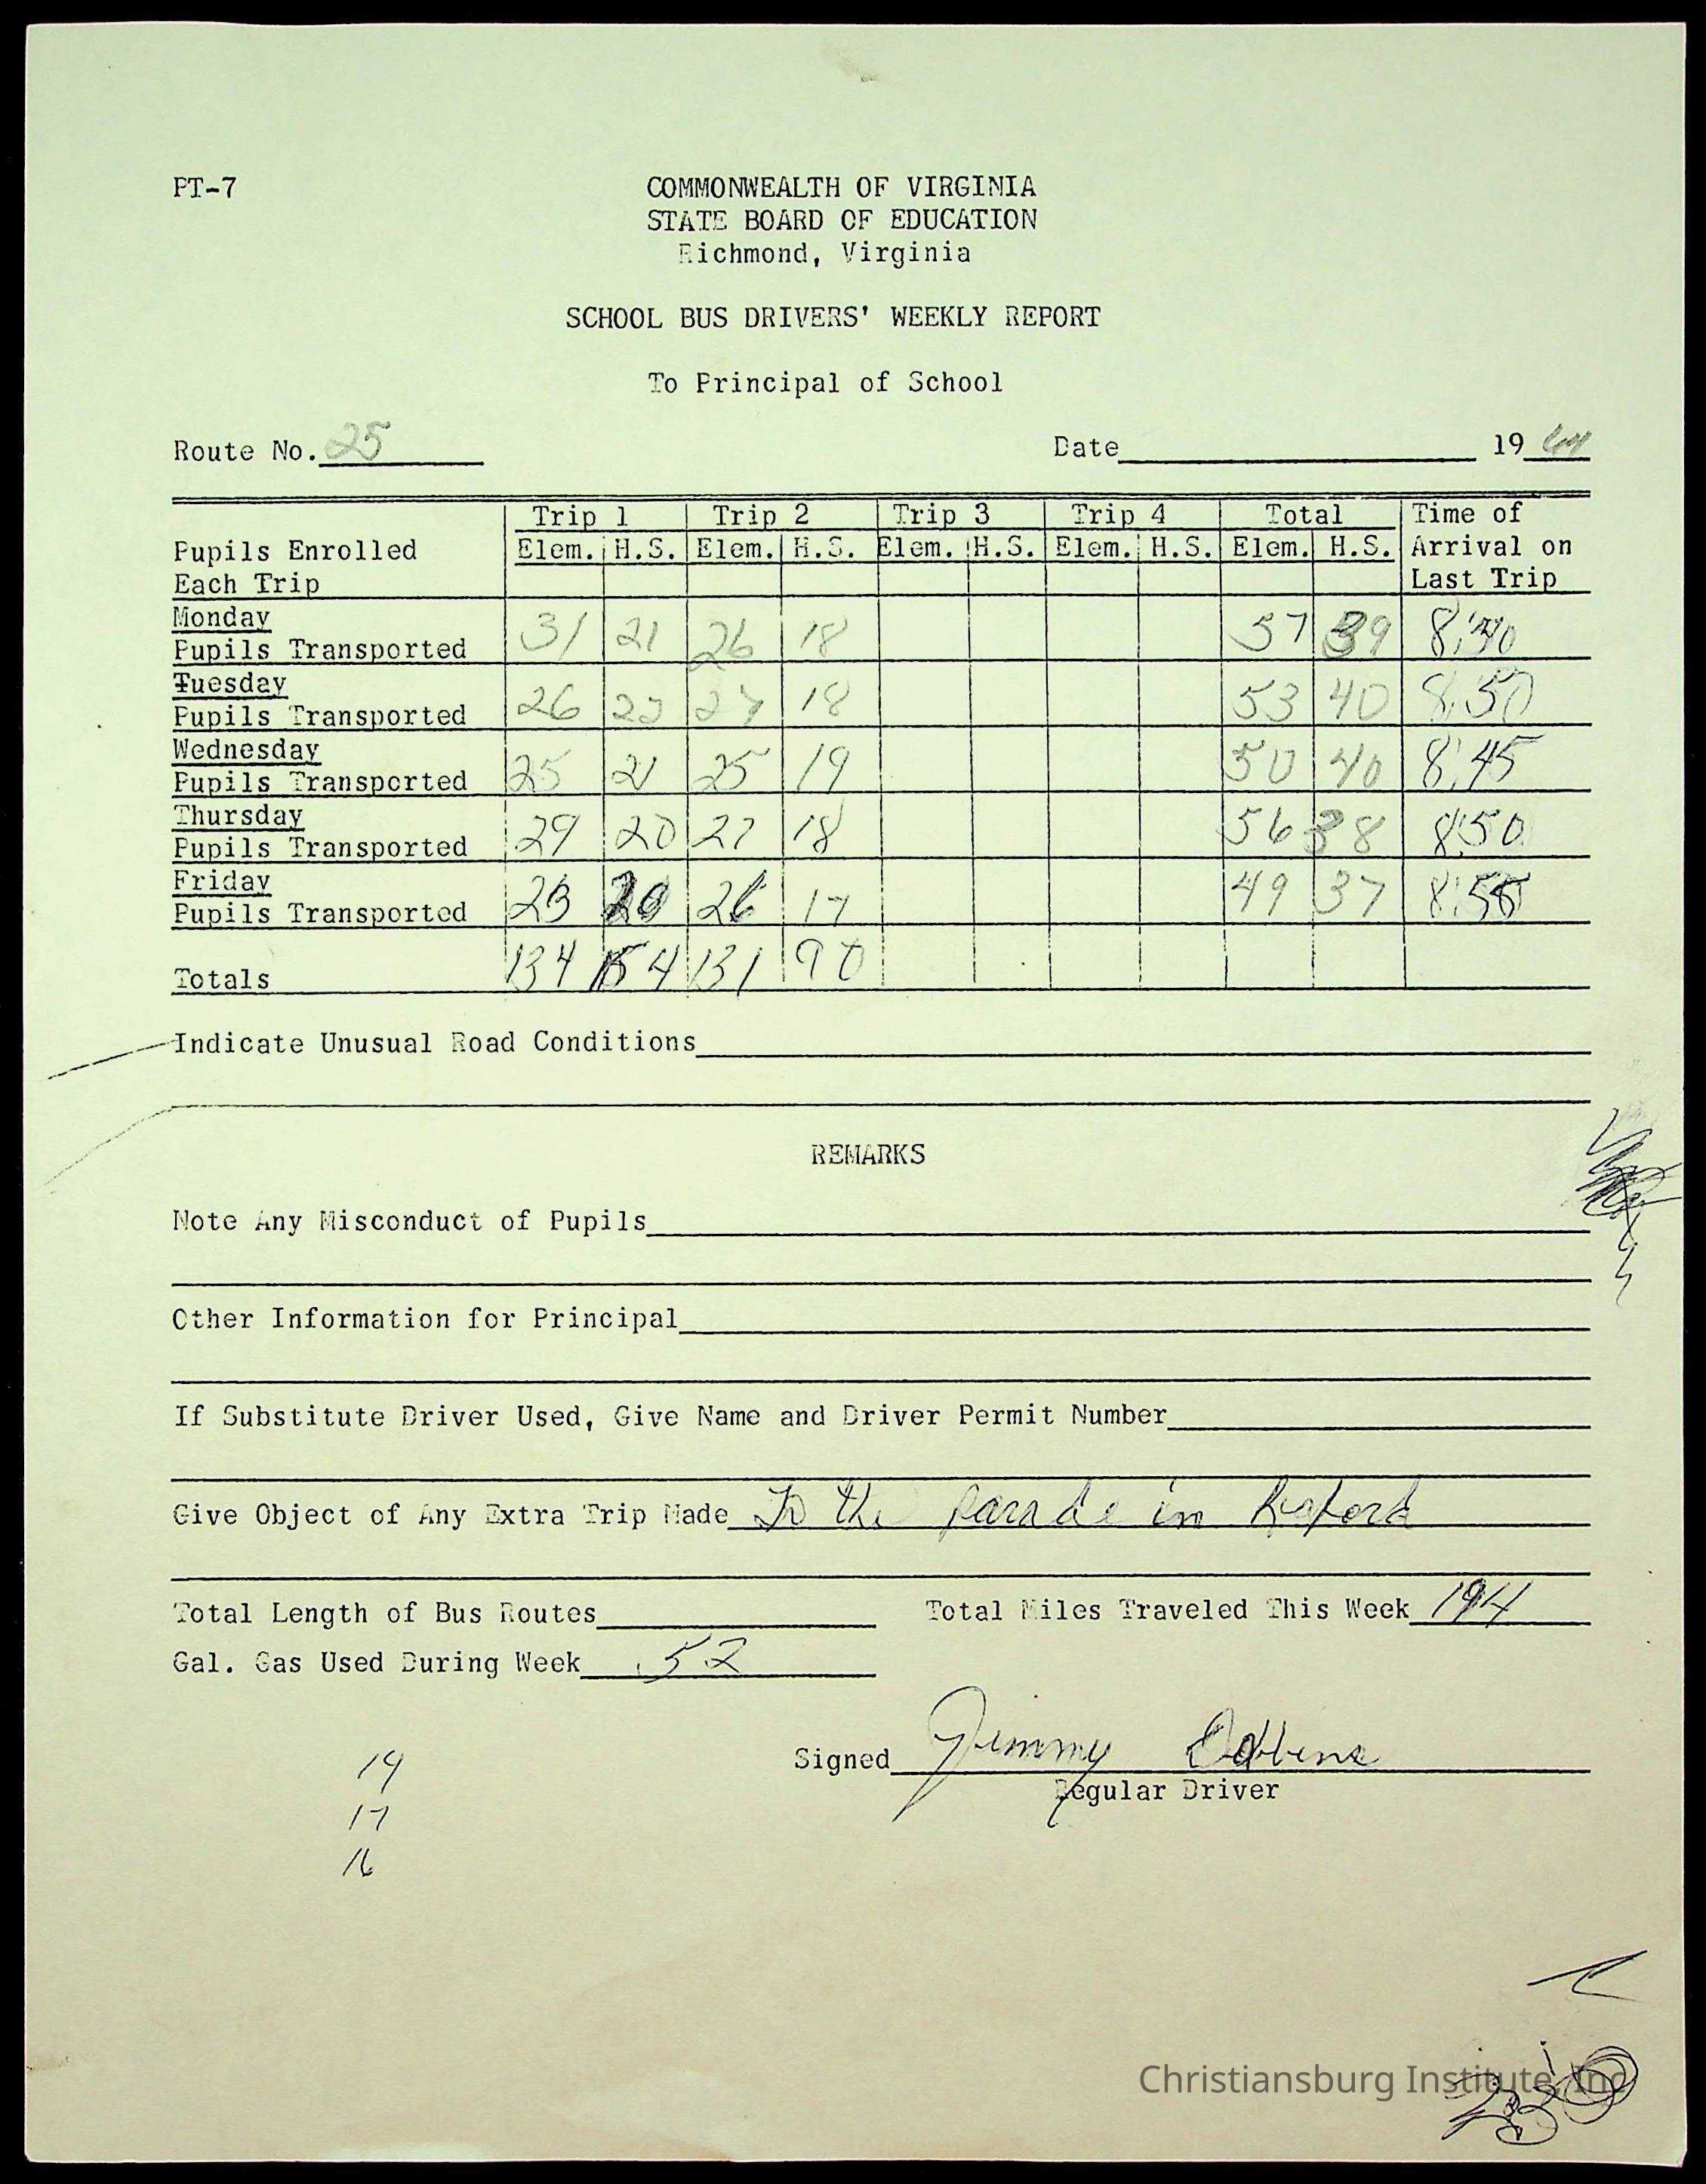 PT-7
COMMONWEALTH OF VIRGINIA
STATE BOARD OF EDUCATION
Richmond, Virginia
SCHOOL BUS DRIVERS' WEEKLY REPORT
To Principal of School
Route No. 25 Date 19 64
Trip 1 Trip 2 Trip 3 Trip 4 Total Time of
Pupils Enrolled Elem. H.S. Elem. H.S. Elem. H.S. Elem. H.S. Elem. H.S. Arrival on
Each Trip Last Trip
Monday
Pupils Transported 31 21 26 18 57 39 8:40
Tuesday
Pupils Transported 26 22 27 18 53 40 8:50
Wednesday
Pupils Transported 25 21 25 19 50 40 8:45
Thursday
Pupils Transported 29 20 27 18 56 38 8:50
Friday
Pupils Transported 23 20 26 17 49 37 8:55
Totals 134 131 90
Indicate Unusual Road Conditions
REMARKS
Note Any Misconduct of Pupils
Other Information for Principal
If Substitute Driver Used, Give Name and Driver Permit Number
Give Object of Any Extra Trip Made To the parade in
Total Length of Bus Routes Total Miles Traveled This Week 194
Gal. Gas Used During Week 52
Signed Jimmy
Regular Driver
19
17
16
Christiansburg Institute, Inc